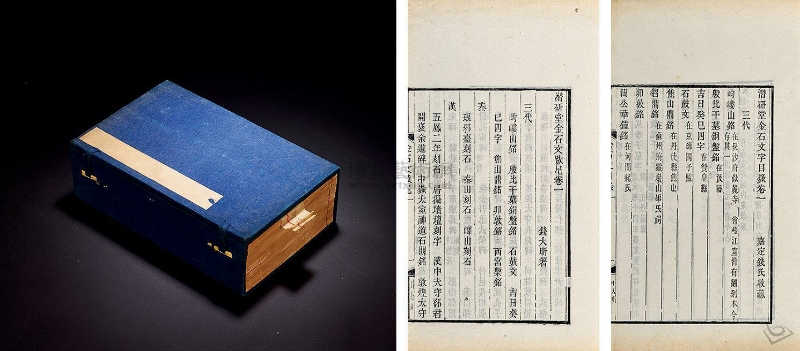 潛研堂金石文跋尾卷一
錢大昕著
三代
岣嶁山銘 殷比干墓銅盤銘 石鼓文 吉日癸
巳四字 焦山鼎銘 卯敦銘 西宮槃銘
秦
琅邪臺刻石 泰山刻石 嶧山刻石
漢
五鳳二年刻石 居攝墳壇刻字 漢中太守鄐君
開褒余道碑 中嶽太室神道石闕銘 敦煌太守
潛研堂金石文字目錄卷一
嘉定錢氏收藏
三代
岣嶁山銘
殷比干墓銅盤銘 在汲縣
吉日癸巳四字 在贊皇縣
石鼓文 在京師國子監
焦山鼎銘 在丹徒縣焦山
卯敦銘
周公華鐘銘 在河間紀氏